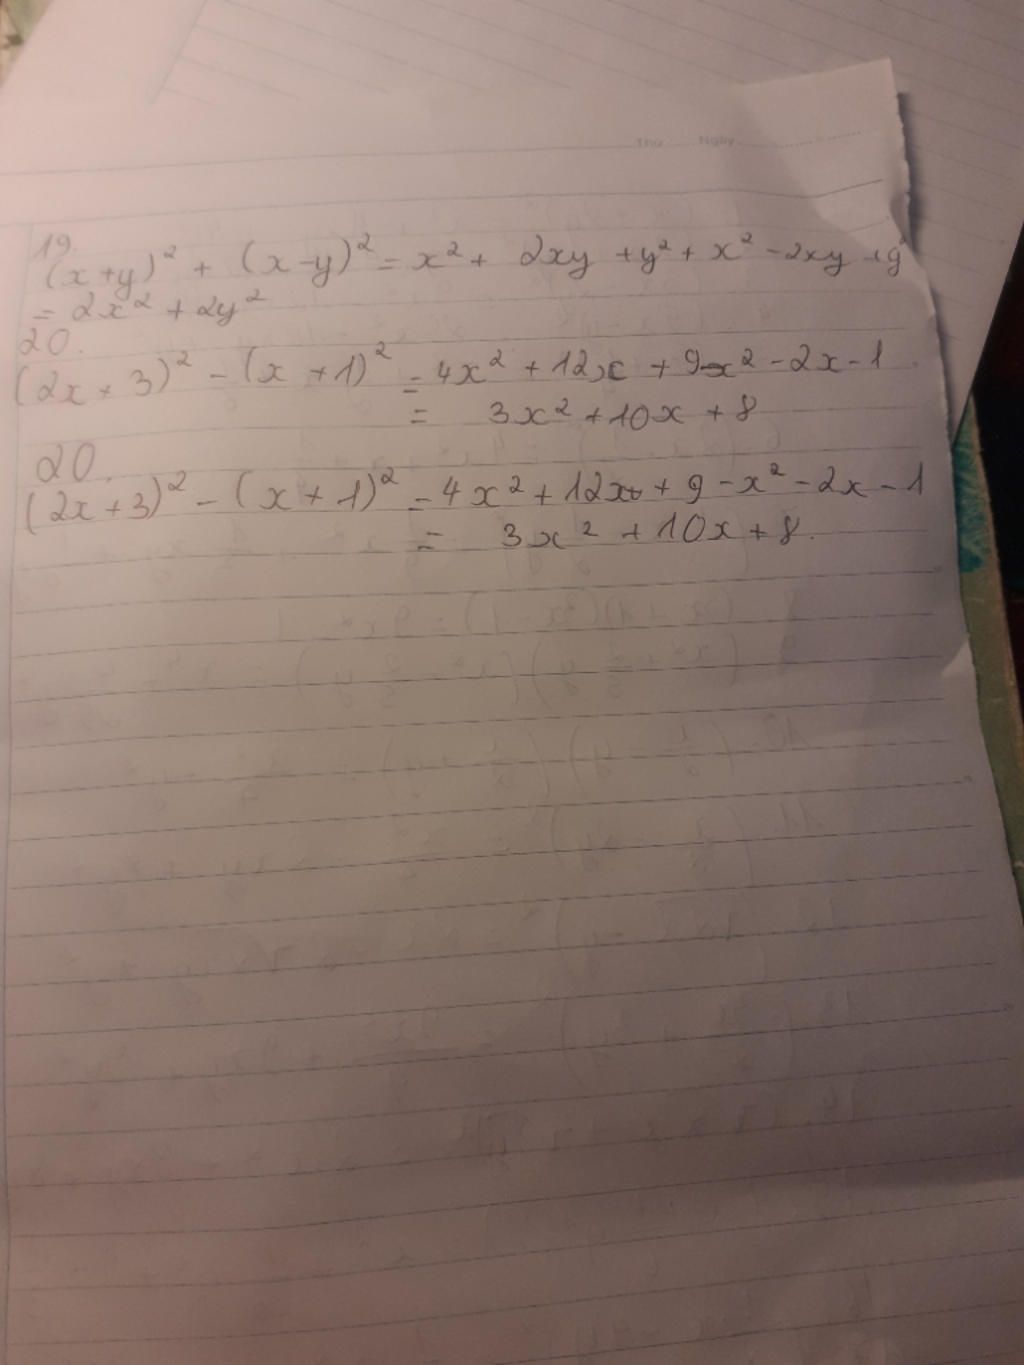 Thứ Ngày
19.
(x+y)² + (x-y)² = x² + 2xy + y² + x² - 2xy + y²
= 2x² + 2y²
20.
(2x + 3)² - (x + 1)² = 4x² + 12x + 9 - x² - 2x - 1
= 3x² + 10x + 8
20.
(2x + 3)² - (x + 1)² = 4x² + 12x + 9 - x² - 2x - 1
= 3x² + 10x + 8.